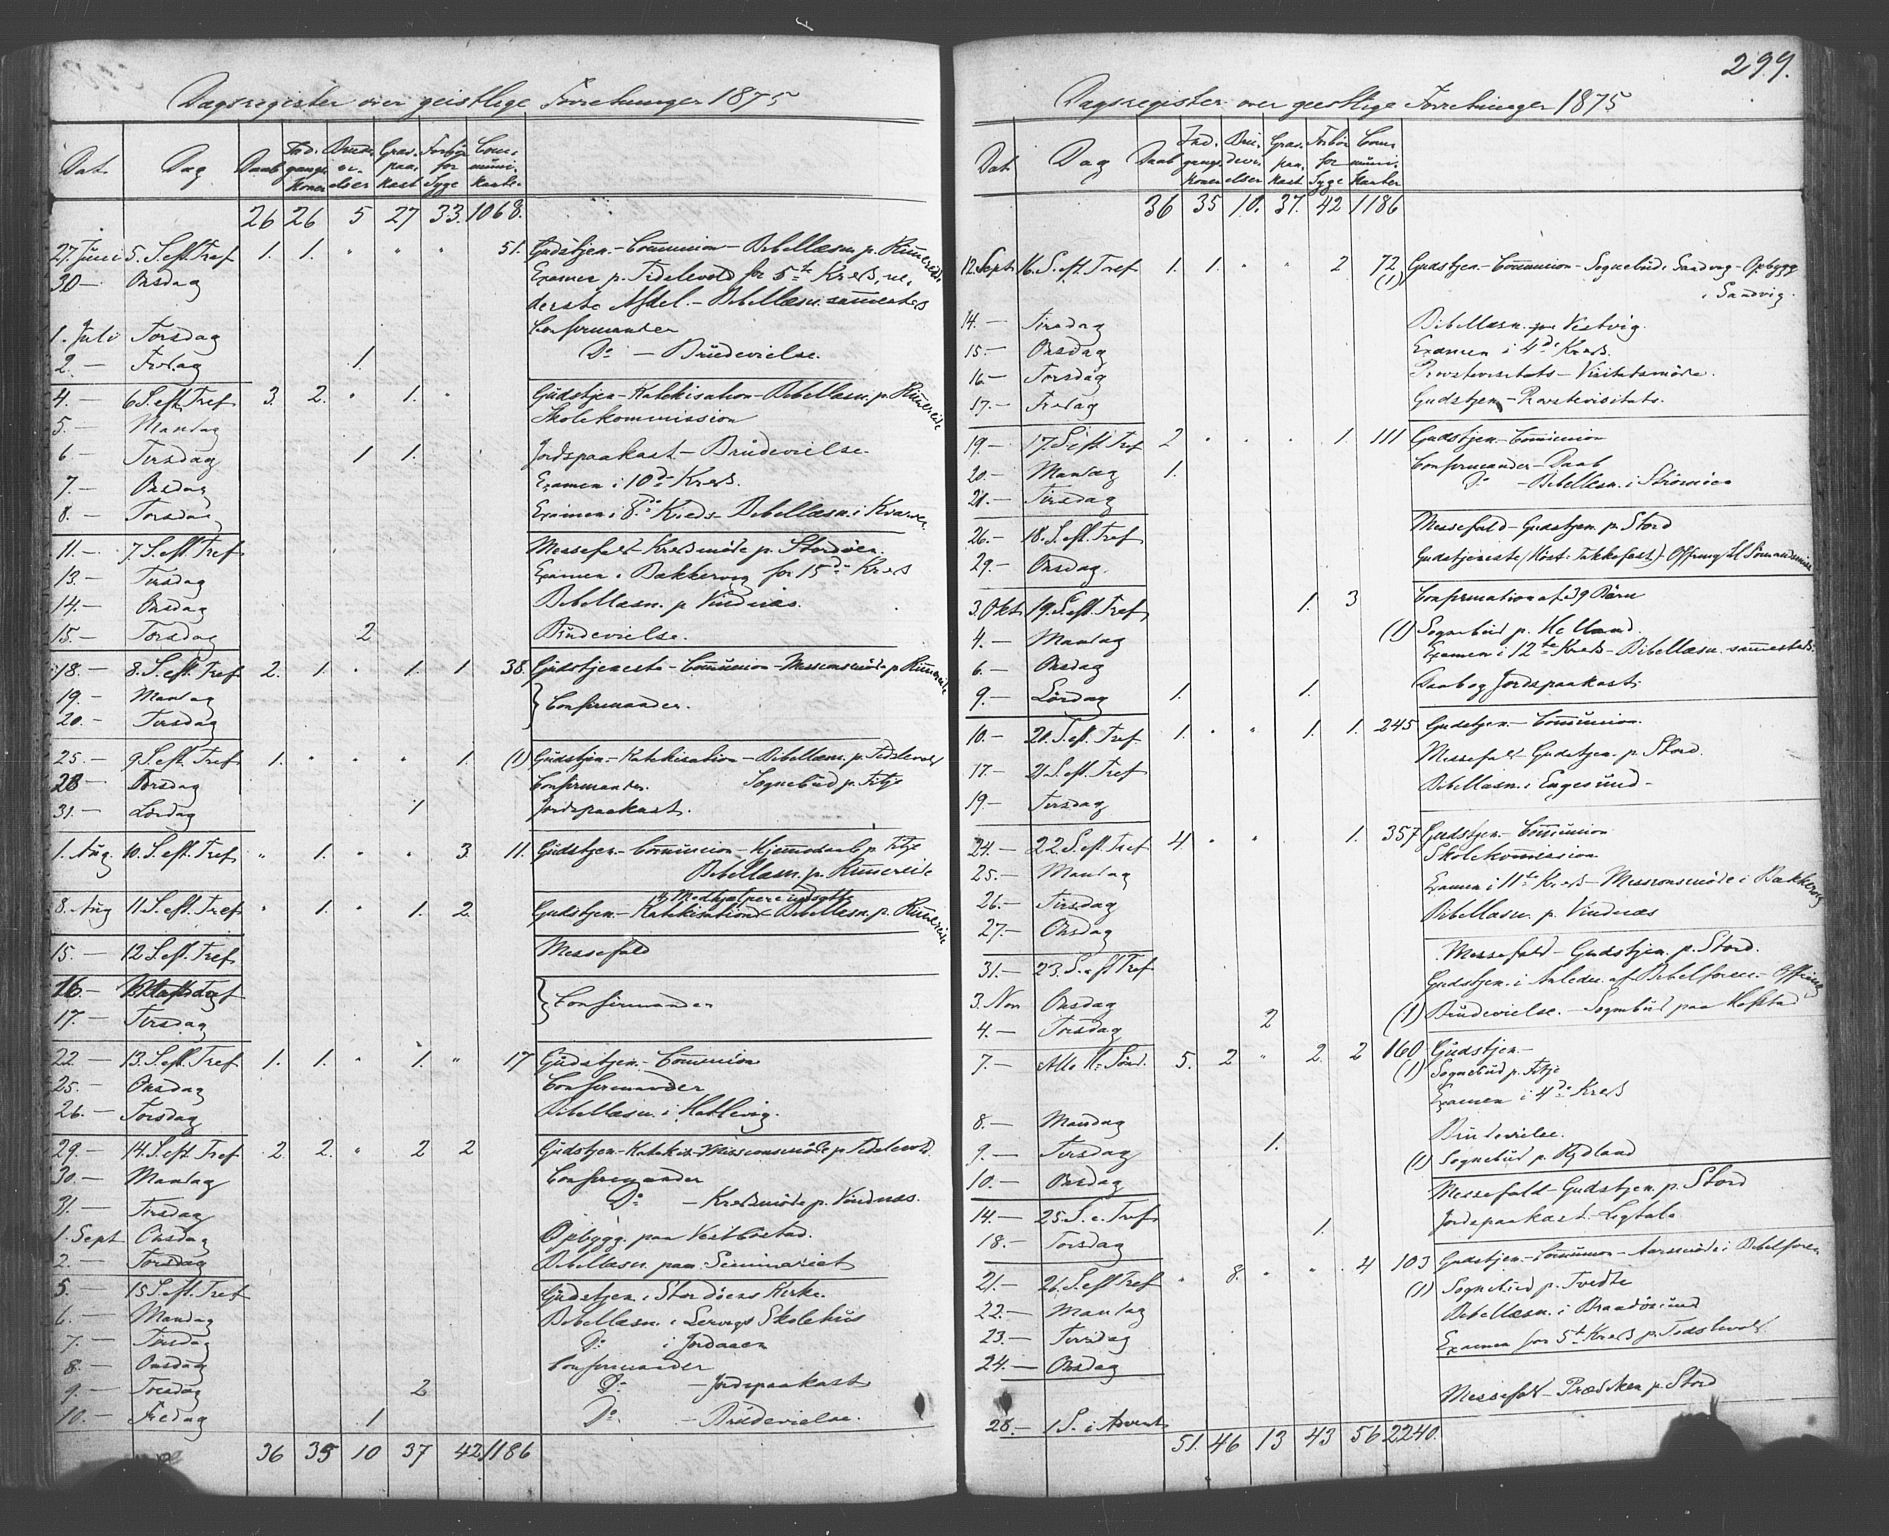 299.
Dagsregister over geistlige Forretninger 1875
Dat Dag Daab Ind- gangs Koner Brude vi- elser Grav- paa- kast Forbøn for Syge Com- muni- kanter
26 26 5 27 33. 1068.
27 Juni 5. S. eft. Tref 1. 1. " " " 51. Gudstjen- Communion - Bibellæsn. p. Rimereide
30 - Onsdag Examen p. Tidelevold for 5te Kreds, ne-
derste Afdel. - Bibellæsn. sammesteds
1. Juli Torsdag Confirmander
2. - Fredag 1. Do - Brudevielse.
4. - 6 S. eft. Tref 3. 2. " 1. " Gudstjen - Katekisation - Bibellæsn. p. Rimereide
5. - Mandag Skolekommission
6 - Tirsdag 1 1. Jordspaakast - Brudevielse
7. - Onsdag Examen i 10de Kreds.
8. - Torsdag Examen i 8de Kreds Bibellæsn. i Kvarven
11. - 7 S. eft. Tref Messefald - Kredsmøde p. Stordøen.
13. - Tirsdag Examen i Bakkevig for 15de Kreds
14. - Onsdag Bibellæsn. p. Vindnæs.
15. - Torsdag 2 Brudevielse.
18. - 8. S. eft. Tref 2. 1. " 1. 1 38. Gudstjeneste - Communion - Missionsmøde p. Rimereide
19. - Mandag } Confirmander.
20. - Tirsdag
25. - 9 S. eft. Tref 1. " " " 1. (1) Gudstjen - Katekisation - Bibellæsn. p. Tidelevold
28 - Torsdag Confirmander. Sognebud p. Fitje
31. - Lördag 1 Jordspaakast.
1. Aug. 10. S. eft. Tref " 1. " " 3. 11. Gudstjen - Communion - Hjemmedaab p. Fitje
Bibellæsn. p. Rimereide
8. Aug 11 S. eft. Tref " 1. " 1. 2. Gudstjen. - Katekisation - Bibellæsn. p. Rimereide
15. - 12 S. eft. Tref Messefald
16 - } Confirmander
17. - Tirsdag
22. - 13. S. eft. Tref 1. 1. " 1. " 17 Gudstjen. - Communion
25. - Onsdag Confirmander
26. - Torsdag Bibellæsn. i Hatlevig.
29. - 14. S. eft. Tref 2. 2. " 2 2 Gudstjen - Katekis - Missionsmøde p. Tidelevold
30. - Mandag Confirmander
31. - Tirsdag Do - Kredsmöde p. Vindnæs.
1. Sept Onsdag Opbygg. paa Vestböstad.
2. - Torsdag Bibellæsn. paa Seminariet
5. - 15 S. eft. Tref Gudstjen. i Stordöens Kirke.
6. - Mandag Bibellæsn. i Lervigs Skolehus
7. - Tirsdag Do i Jordaaen
8. - Onsdag Confirmander
9. - Torsdag 2 Do - Jordspaakast
10. - Fredag 1 Do - Brudevielse.
36 35 10 37 42 1186
Dagsregister over geistlige Forretninger 1875
Dat Dag Daab Ind- gangs koner Bru- devi- elser Grav- paa- kast Forbön for Syge Com- muni- kanter
36 35 10. 37. 42 1186
12 Sept. 16. S. eft. Tref 1. 1. " " 2 72 Gudstjen - Communion - Sognebud i Sandvig - Opbygg
(1) i Sandvig.
14. - Tirsdag Bibellæsn. paa Vestvig.
15. - Onsdag Examen i 4de Kreds.
16 - Torsdag Provstevisitats - Visitatsmöde.
17. - Fredag Gudstjen - Provstevisitats.
19. - 17. S. eft. Tref 2 " " " 1. 111 Gudstjen. - Communion
20. - Mandag 1. Confirmander - Daab
21. - Tirsdag Do - Bibellæsn. i Strömmen
26. - 18. S. eft. Tref Messefald - Gudstjen. p. Stord
29. - Onsdag. Gudstjeneste (Höst-Takkefest) - Offring til Sömandsmiss
3. Okt. 19. S. eft. Tref 1. 3 Confirmation af 39 Börn
4. - Mandag (1) Sognebud p. Helland.
6 - Onsdag Examen i 12te Kreds - Bibellæsn. sammesteds.
9. - Lördag 1. 1. Daab og Jordspaakast.
10. - 20. S. eft. Tref. 1. " " 1. 1. 245 Gudstjen. - Communion.
17. - 21. S. eft. Tref Messefald - Gudstjen. p. Stord.
19 - Tirsdag Bibellæsn. i Engesund -
24. - 22. S. eft. Tref 4 " " 1. 357 Gudstjen - Communion
25. - Mandag Skolekommission
26. - Tirsdag Examen i 11te Kreds - Missionsmøde i Bakkevig
27. - Onsdag Bibellæsn. p. Vindnæs
31. - 23. S. eft Tref. Messefald - Gudstjen. p. Stord.
3. Nov Onsdag Gudstjen. i Anledn. af Bibelforen. Offring
4. - Torsdag 2 (1) Brudevielse. - Sognebud paa Hofstad
7. - Alle H. Sönd. 5. 2 " 2. 2 160 Gudstjen. -
(1) Sognebud p. Fitje
8. - Mandag Examen i 4de Kreds
9. - Tirsdag 1. Brudevielse.
10. - Onsdag (1) Sognebud p. Rydland
14. - 25. S. e. Tref Messefald - Gudstjen. p. Stord
18. - Torsdag 1. Jordspaakast. Ligtale
21. - 26. S. eft Tref " 8. " " 4 103 Gudstjen - Communion - Aarsmöde i Bibelforen
22. - Mandag (1) Sognebud p. Tvedte
23. - Tirsdag Bibellæsn. i Brandösund
24. - Onsdag Examen for 5te Kreds p. Tidelevold
28. - 1 S. i Advent Messefald - Prædiken p. Stord
51. 46 13 43 56 2240.